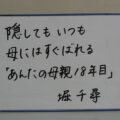 隠しても いつも
母にはすぐばれる
「あんたの母親18年目」
堀 千尋